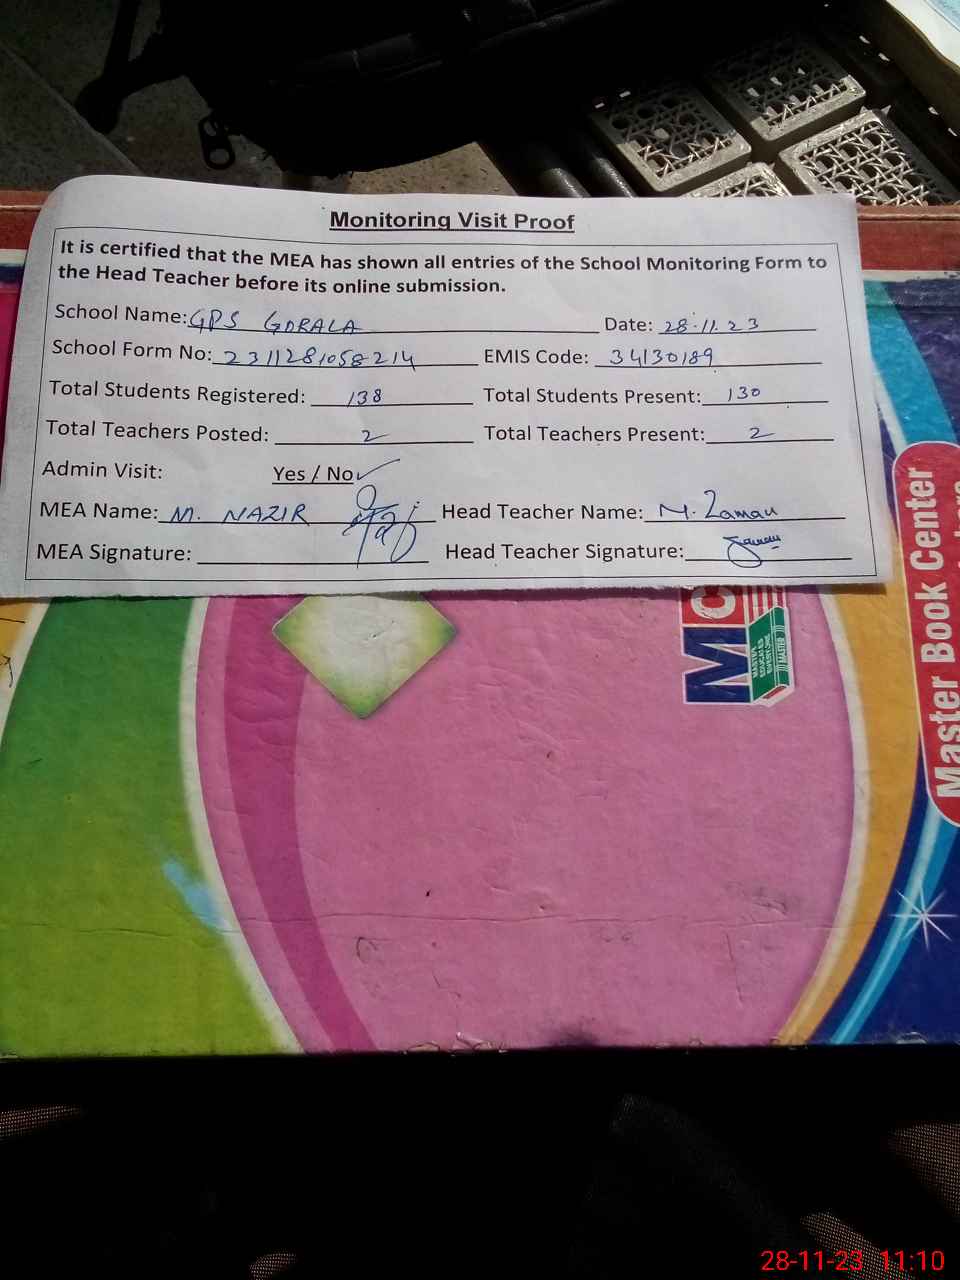 Monitoring Visit Proof
It is certified that the MEA has shown all entries of the School Monitoring Form to
the Head Teacher before its online submission.
School Name: GPS GORALA Date: 28.11.23
School Form No: 2311281058214 EMIS Code: 34130189
Total Students Registered: 138 Total Students Present: 130
Total Teachers Posted: 2 Total Teachers Present: 2
Admin Visit: Yes / No ✓
MEA Name: M. NAZIR Head Teacher Name: M. Zaman
MEA Signature: Head Teacher Signature:
Master Book Center
MASTER
EDUCATES
EVERYONE
MASTER
28-11-23 11:10